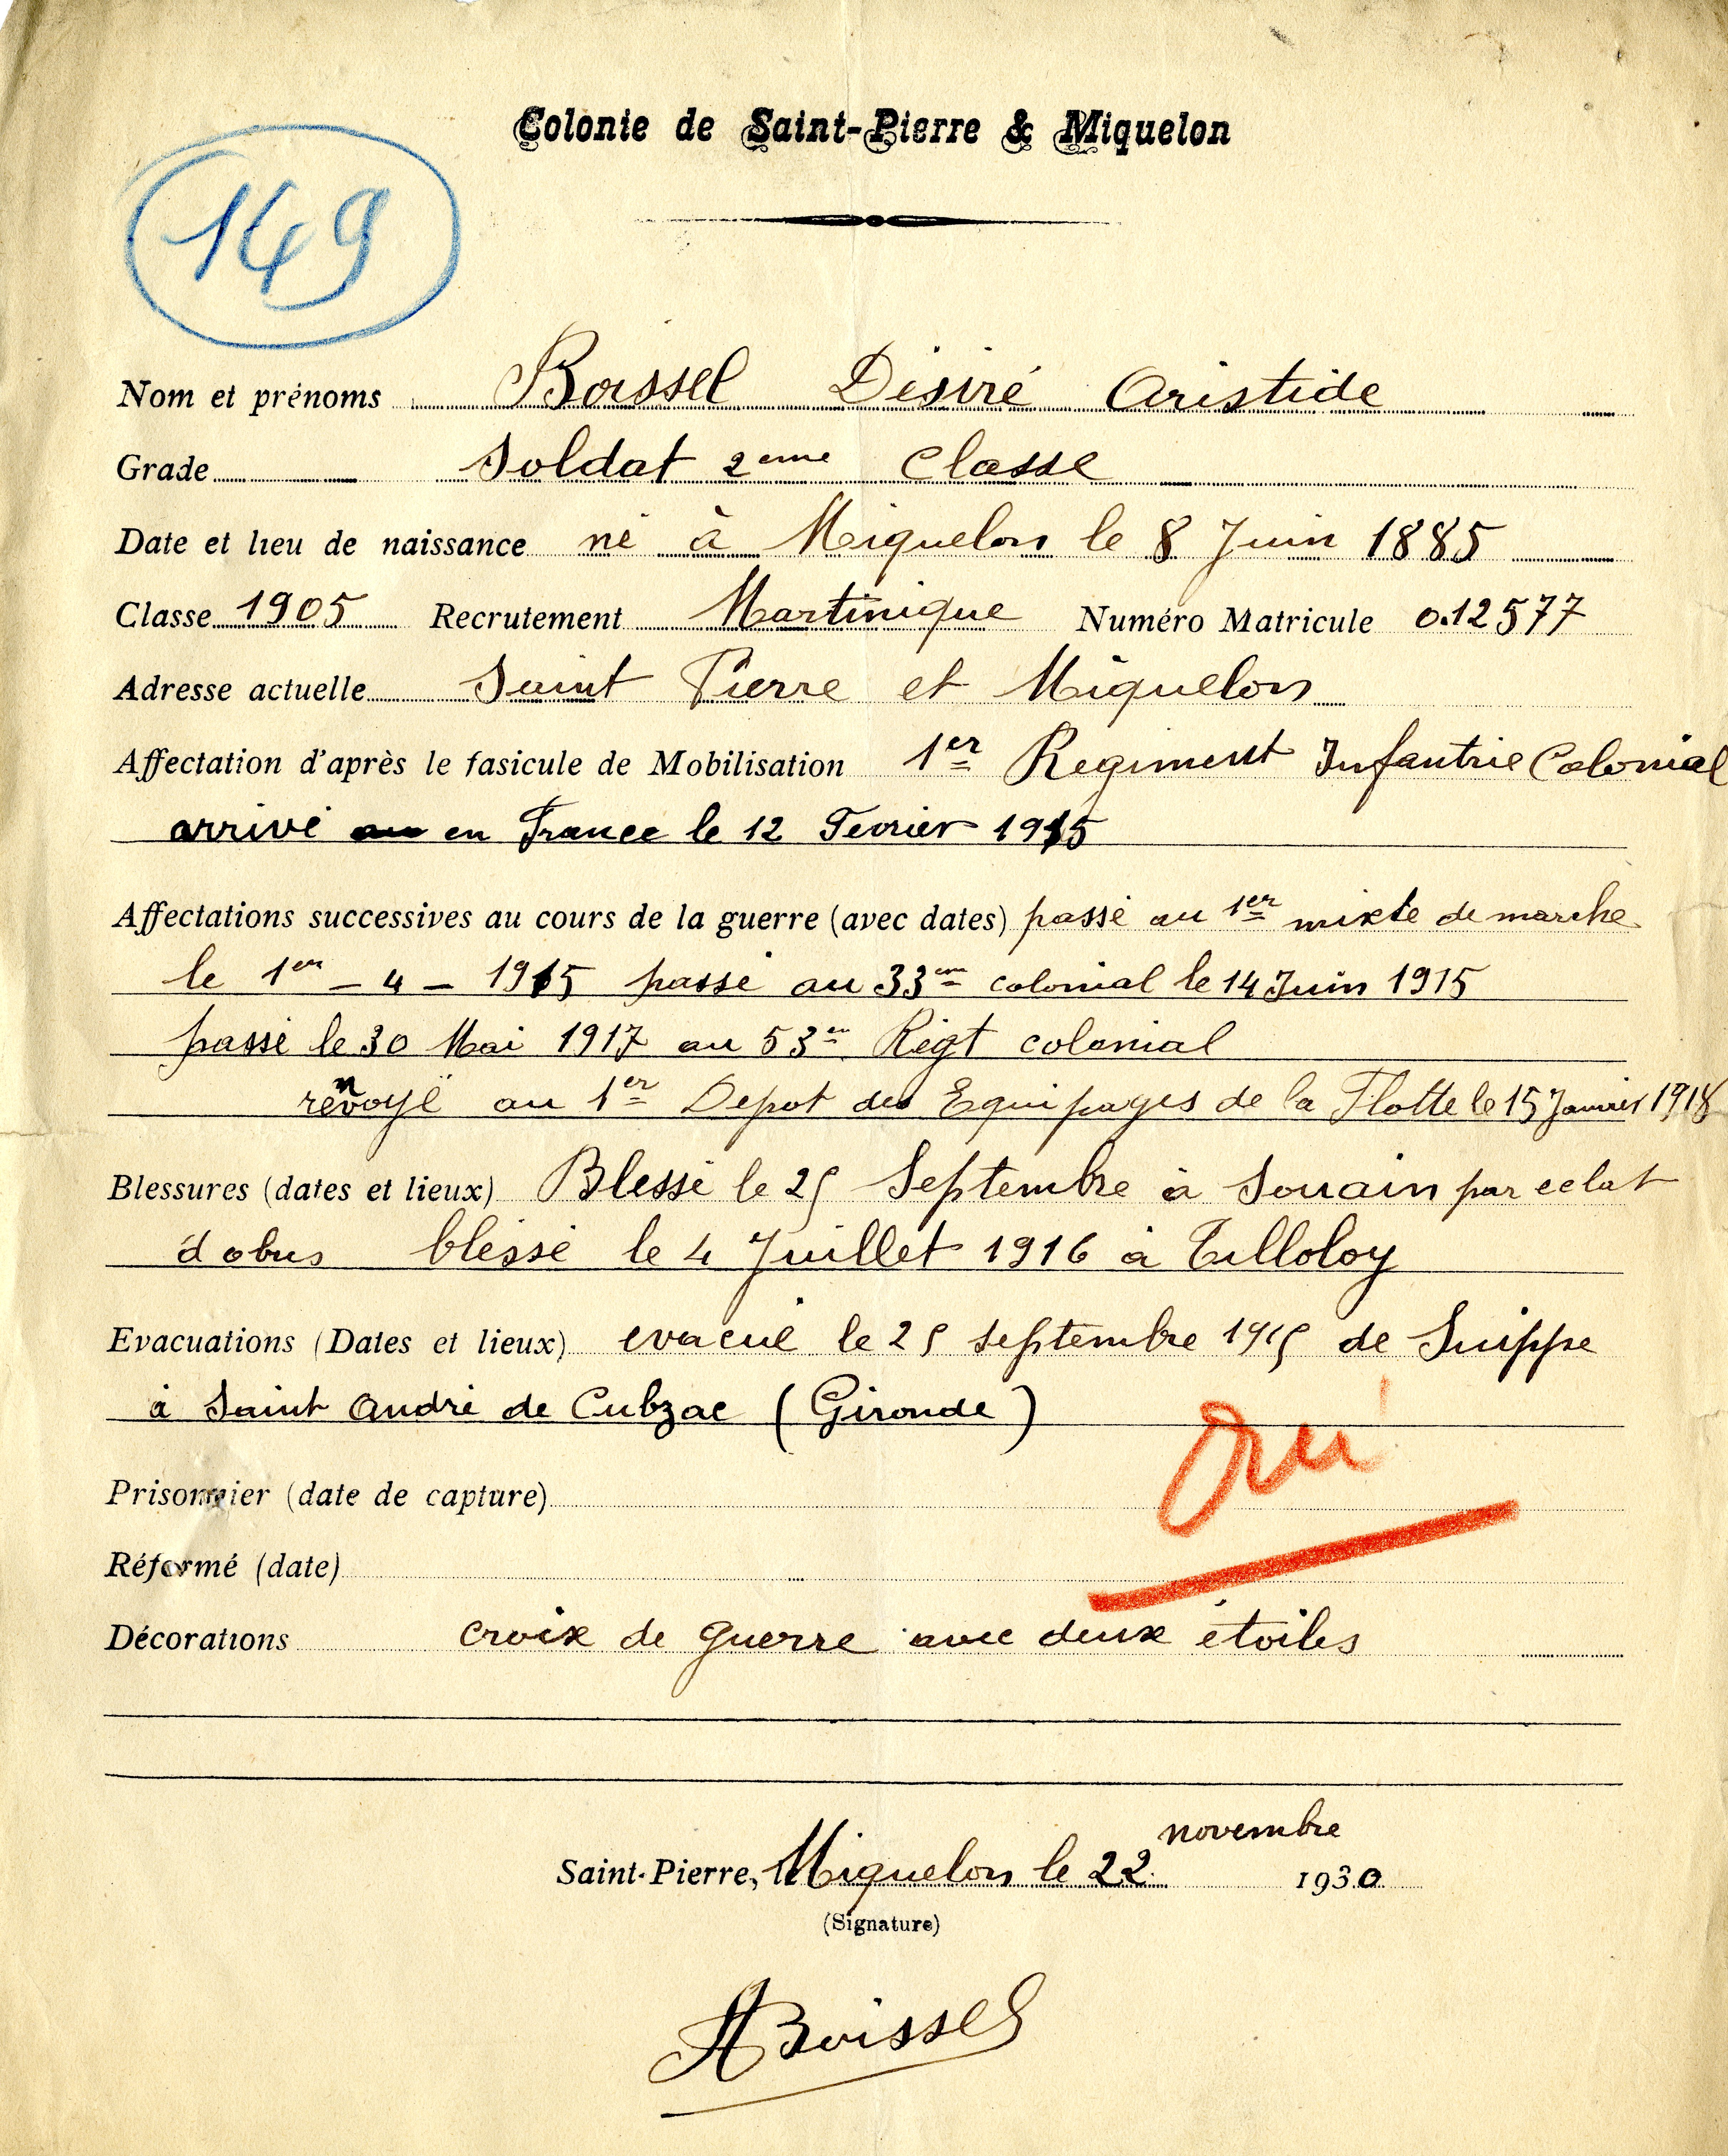 Colonie de Saint-Pierre & Miquelon
149
Nom et prénoms Boissel Désiré Aristide
Grade Soldat 2eme Classe
Date et lieu de naissance né à Miquelon le 8 Juin 1885
Classe 1905 Recrutement Martinique Numéro Matricule 0.12577
Adresse actuelle Saint Pierre et Miquelon
Affectation d'après le fasicule de Mobilisation 1er Regiment Infantrie Colonial
arrivé en France le 12 Fevrier 1915
Affectations successives au cours de la guerre (avec dates) passé au 1er mixte de marche
le 1er - 4 - 1915 passé au 33em colonial le 14 Juin 1915
passé le 30 Mai 1917 au 53em Régt colonial
renvoyé au 1er Depot des Equipages de la Flotte le 15 Janvier 1918
Blessures (dates et lieux) Blessé le 25 Septembre à Souain par eclat
d obus bléssé le 4 Juillet 1916 à Tilloloy
Evacuations (Dates et lieux) evacué le 25 septembre 1915 de Suippe
à Saint André de Cubzac (Gironde)
Oui
Prisonnier (date de capture)
Réformé (date)
Décorations croix de guerre avec deux étoiles
novembre
Saint-Pierre, le Miquelon le 22 1930
(Signature)
ABoissel